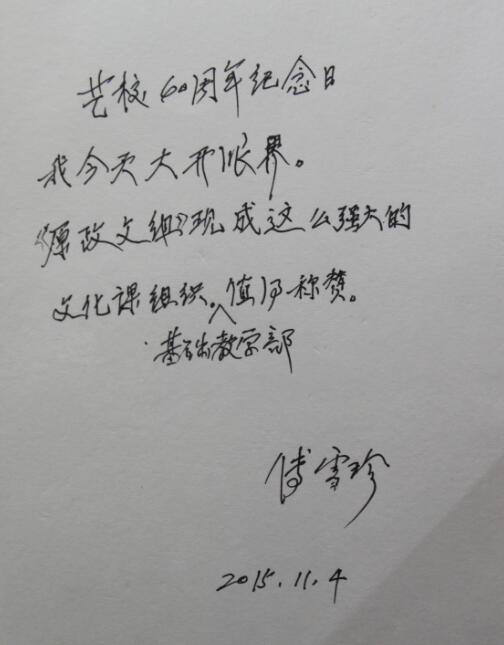 艺校60周年纪念日
我今天大开眼界。
《原政文组》现成这么强大的
文化课组织。值得称赞。
基础教学部
傅雪珍
2015.11.4